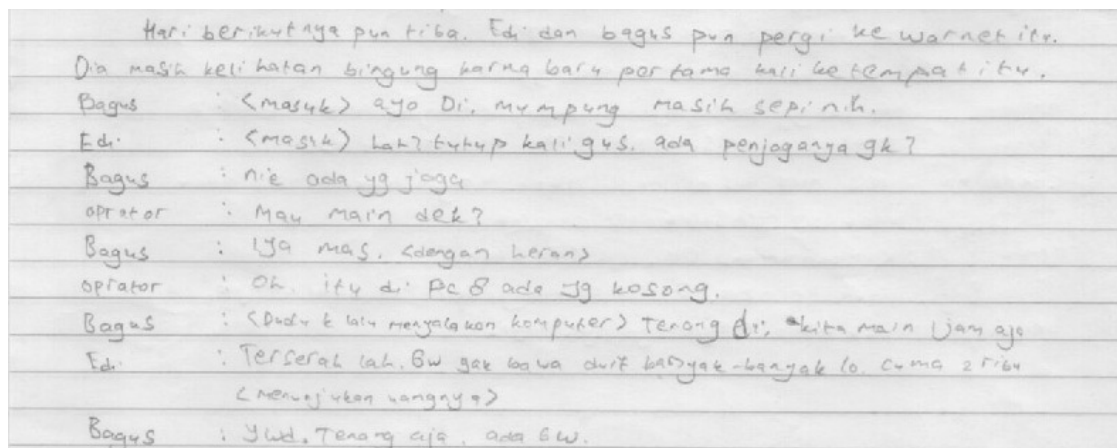 Hari berikutnya pun tiba. Edi dan bagus pun pergi ke warnet itu.
Dia masih kelihatan bingung karna baru pertama kali ketempat itu.
Bagus : <masuk> ayo Di, mumpung masih sepi nih.
Edi : <masuk> Lah? tutup kali gus. ada penjaganya gk?
Bagus : nie ada yg jaga
oprator : Mau main dek?
Bagus : Iya mas. <dengan heran>
oprator : Oh. itu di PC 8 ada yg kosong.
Bagus : <Duduk lalu menyalakan komputer> Tenang di, kita main 1 jam aja
Edi : Terserah lah. Gw gak bawa duit banyak-banyak lo. cuma 2 ribu
<menunjukan uangnya>
Bagus : ywd. Tenang aja, ada Gw.